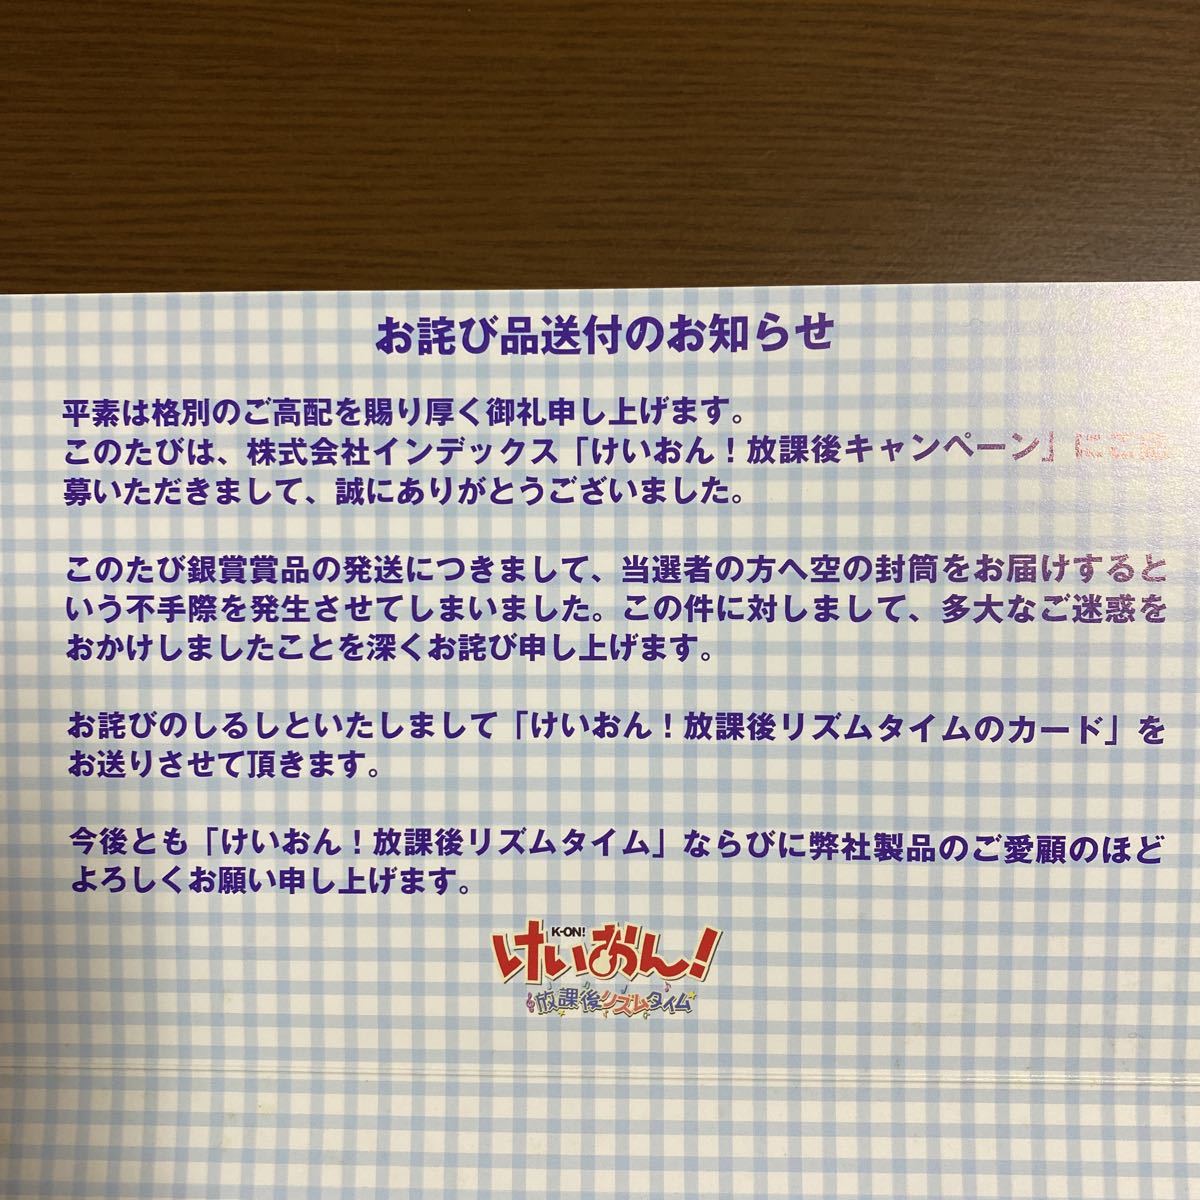 お詫び品送付のお知らせ
平素は格別のご高配を賜り厚く御礼申し上げます。
このたびは、株式会社インデックス「けいおん！放課後キャンペーン」にご応
募いただきまして、誠にありがとうございました。
このたび銀賞賞品の発送につきまして、当選者の方へ空の封筒をお届けすると
いう不手際を発生させてしまいました。この件に対しまして、多大なご迷惑を
おかけしましたことを深くお詫び申し上げます。
お詫びのしるしといたしまして「けいおん！放課後リズムタイムのカード」を
お送りさせて頂きます。
今後とも「けいおん！放課後リズムタイム」ならびに弊社製品のご愛顧のほど
よろしくお願い申し上げます。
K-ON!
けいおん!
放課後リズムタイム